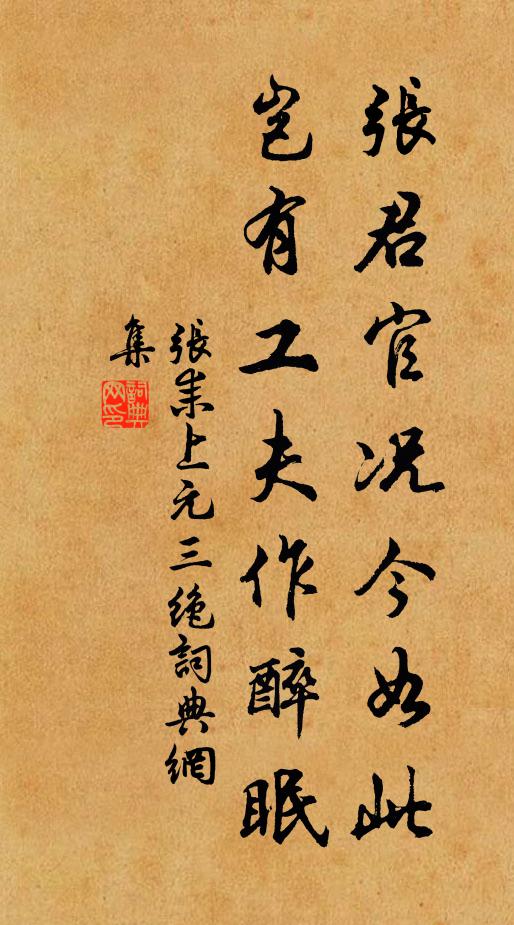 張君官况今如此
豈有工夫作醉眠
張耒上元三絶詞典網
集
詞典
网印